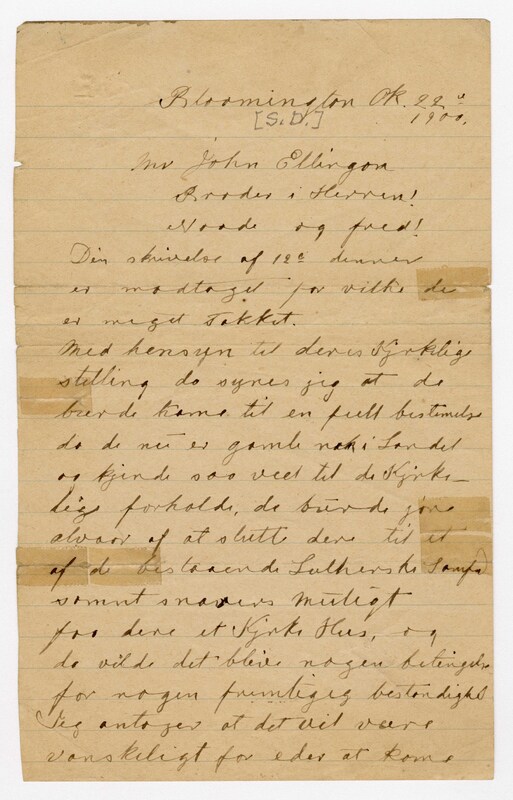 Bloomington Ok. 22de
[S.D.] 1900.
Mr John Ellingson
Broder i Herren!
Naade og fred!
Din skrivelse af 12e denner
er modtaget for vilke de
er meget Takket.
Med hensyn til deres Kjrklige
stilling da synes jeg at de
burde kome til en fult bestemelse
da de nu er gamle nok i Landet
og kjende saa veel til de Kjrke-
lige forholde, de burde jøre
alvaar af at slutte dere til et
af de bestaaende Lutherske Samfd
somnt snarers muligt
faa dere et Kjrke Hus, og
da vilde det bleve nogen betingelse
for nogen fremtigeg bestandighed
Jeg antager at det vil være
vanskeligt for eder at kome